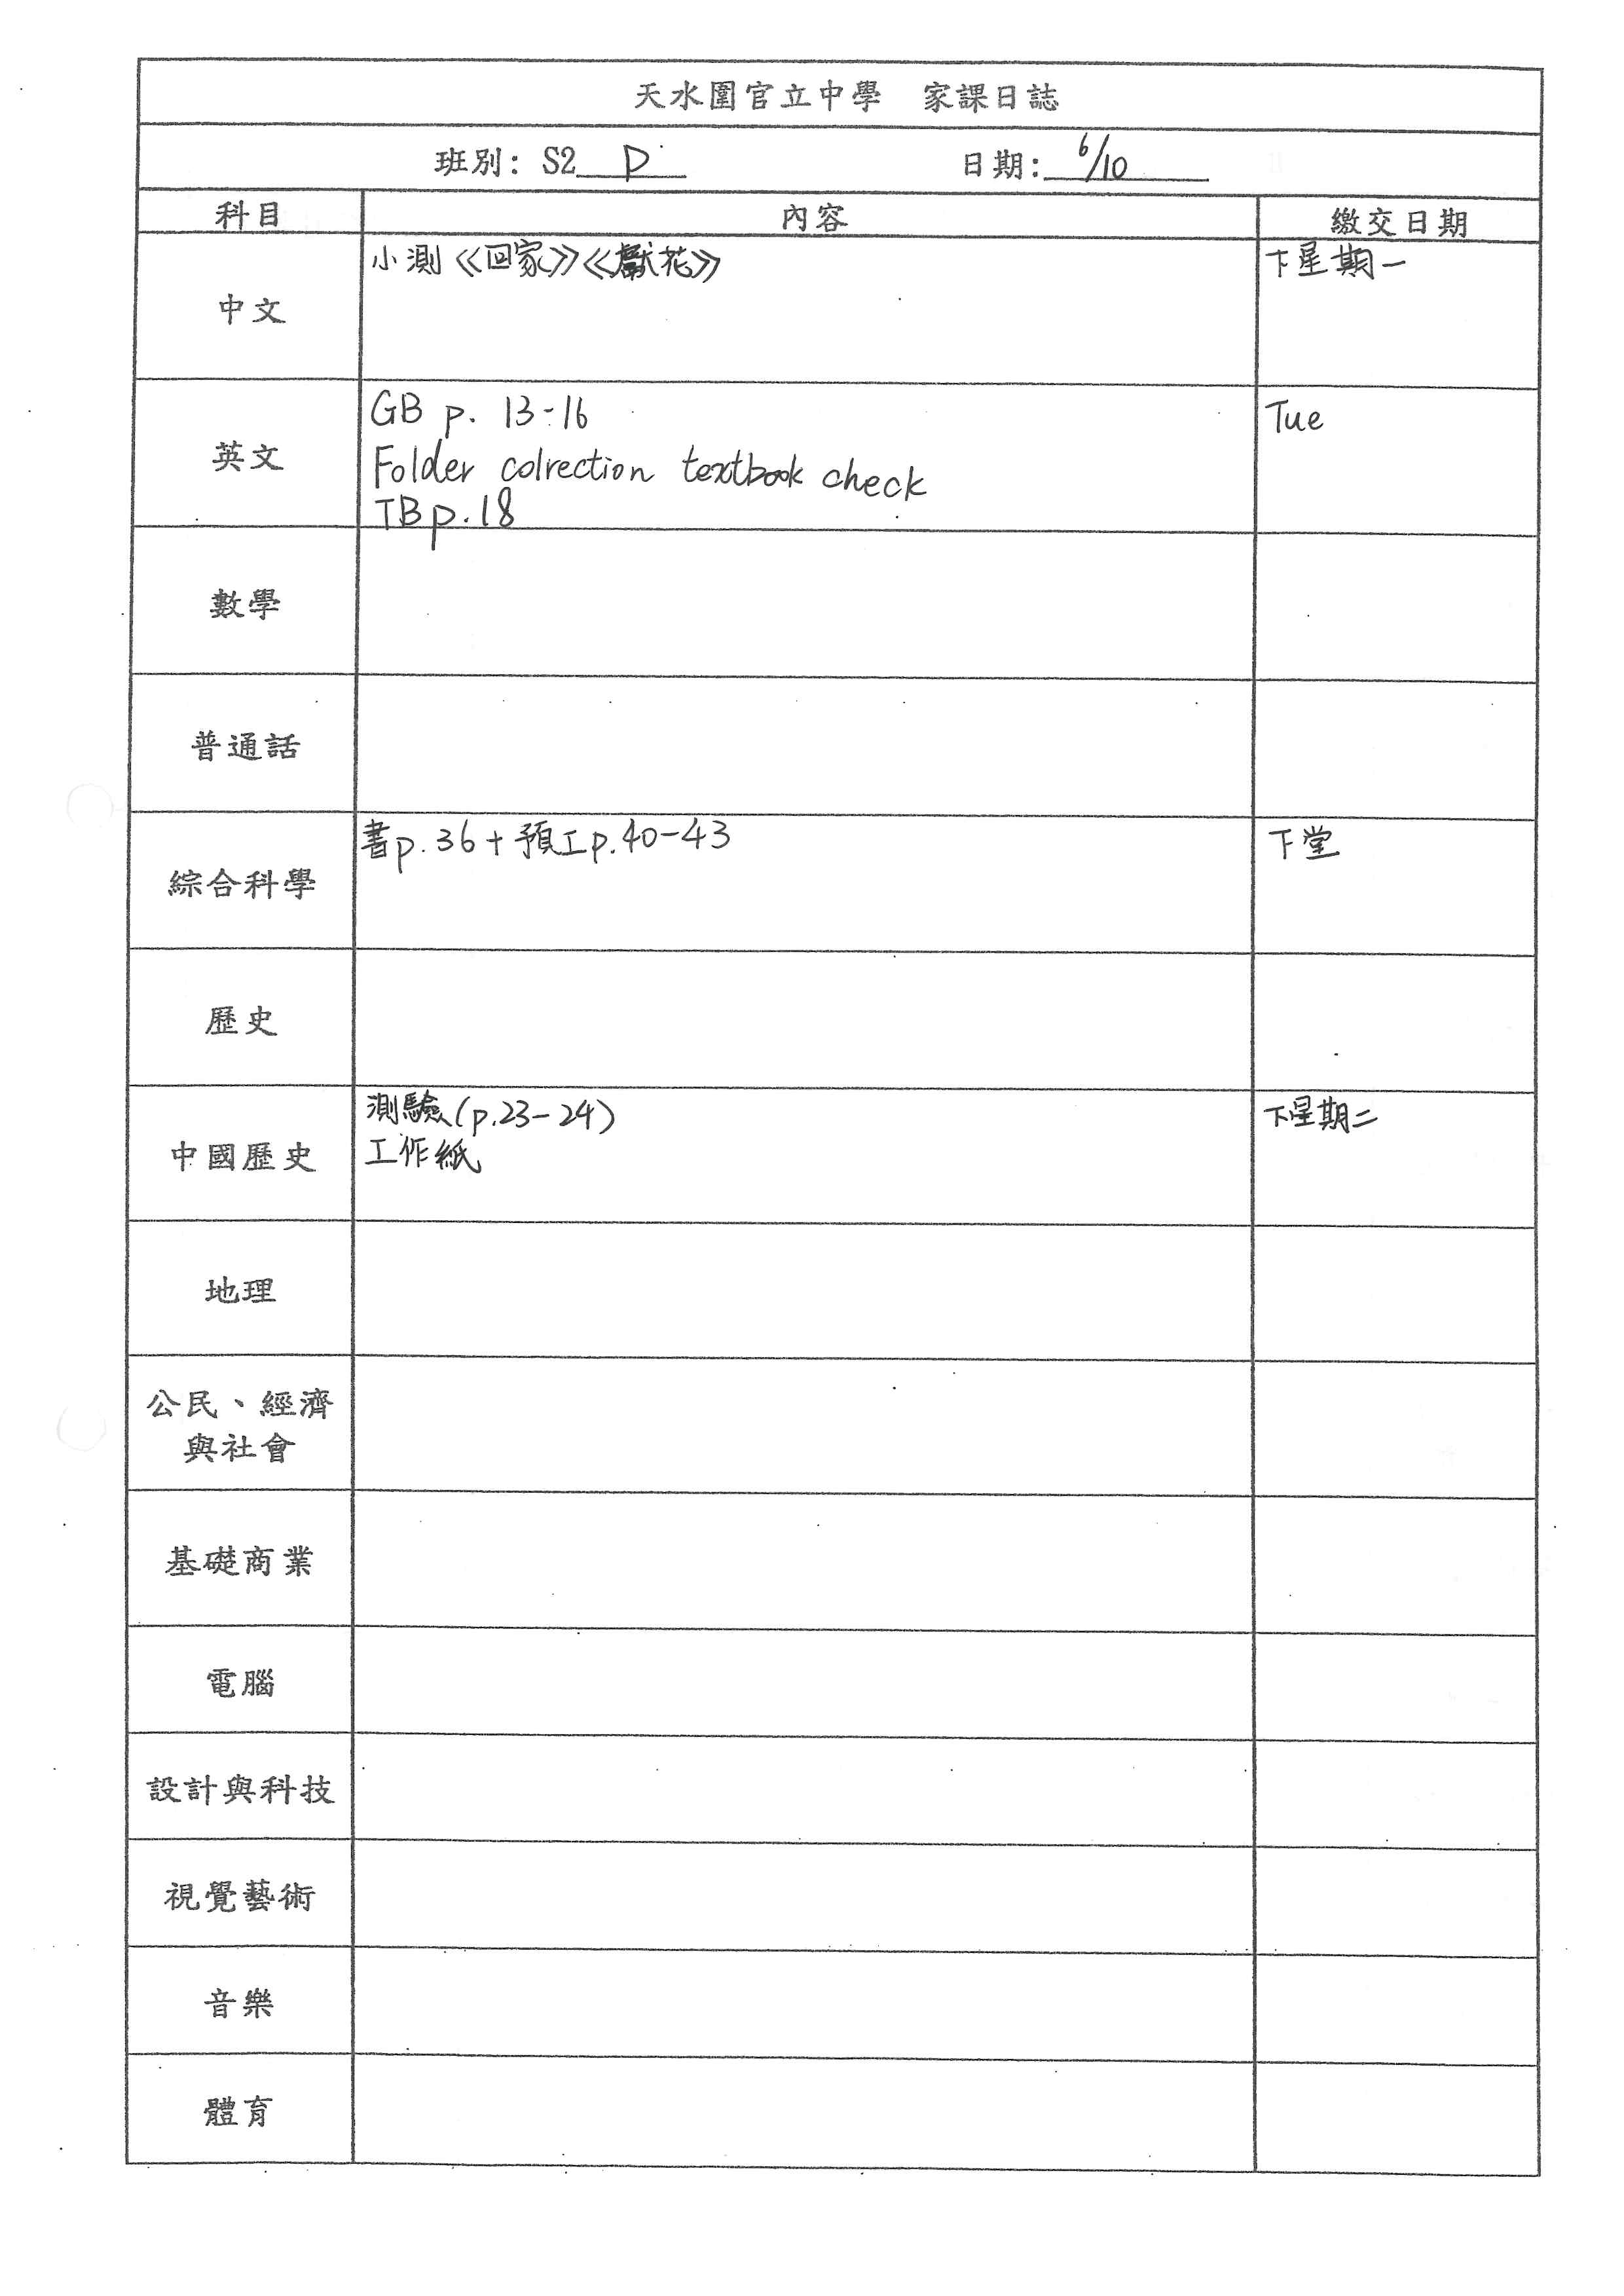 天水圍官立中學 家課日誌
班別: S2 D 日期: 6/10
科目 內容 繳交日期
中文 小測《回家》《獻花》 下星期一
英文 GB p. 13-16 Tue
Folder colrection textbook check
TB p.18
數學
普通話
綜合科學 書p.36+預工p.40-43 下堂
歷史
中國歷史 測驗(p.23-24) 下星期二
工作紙
地理
公民、經濟
與社會
基礎商業
電腦
設計與科技
視覺藝術
音樂
體育